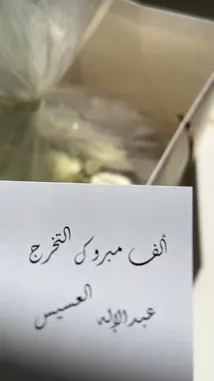 ألف مبروك التخرج
عبدالإله العسيس